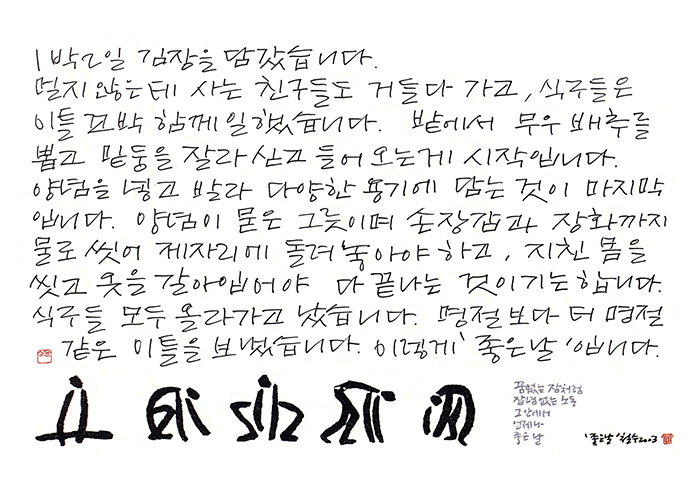 1박2일 김장을 담갔습니다.
멀지않은데 사는 친구들도 거들다 가고, 식구들은
이틀 꼬박 함께 일했습니다. 밭에서 무우 배추를
뽑고 밑둥을 잘라 싣고 들어 오는게 시작입니다.
양념을 넣고 발라 다양한 용기에 담는 것이 마지막
입니다. 양념이 묻은 그릇이며 손장갑과 장화까지
물로 씻어 제자리에 돌려놓아야 하고, 지친 몸을
씻고 옷을 갈아입어야 다 끝나는 것이기는 합니다.
식구들 모두 올라가고 났습니다. 명절보다 더 명절
같은 이틀을 보냈습니다. 이렇게 '좋은날'입니다.
꿈없는 잠처럼
잡념없는 노동
그 안에서
언제나
좋은 날
'좋은날' 철수2003